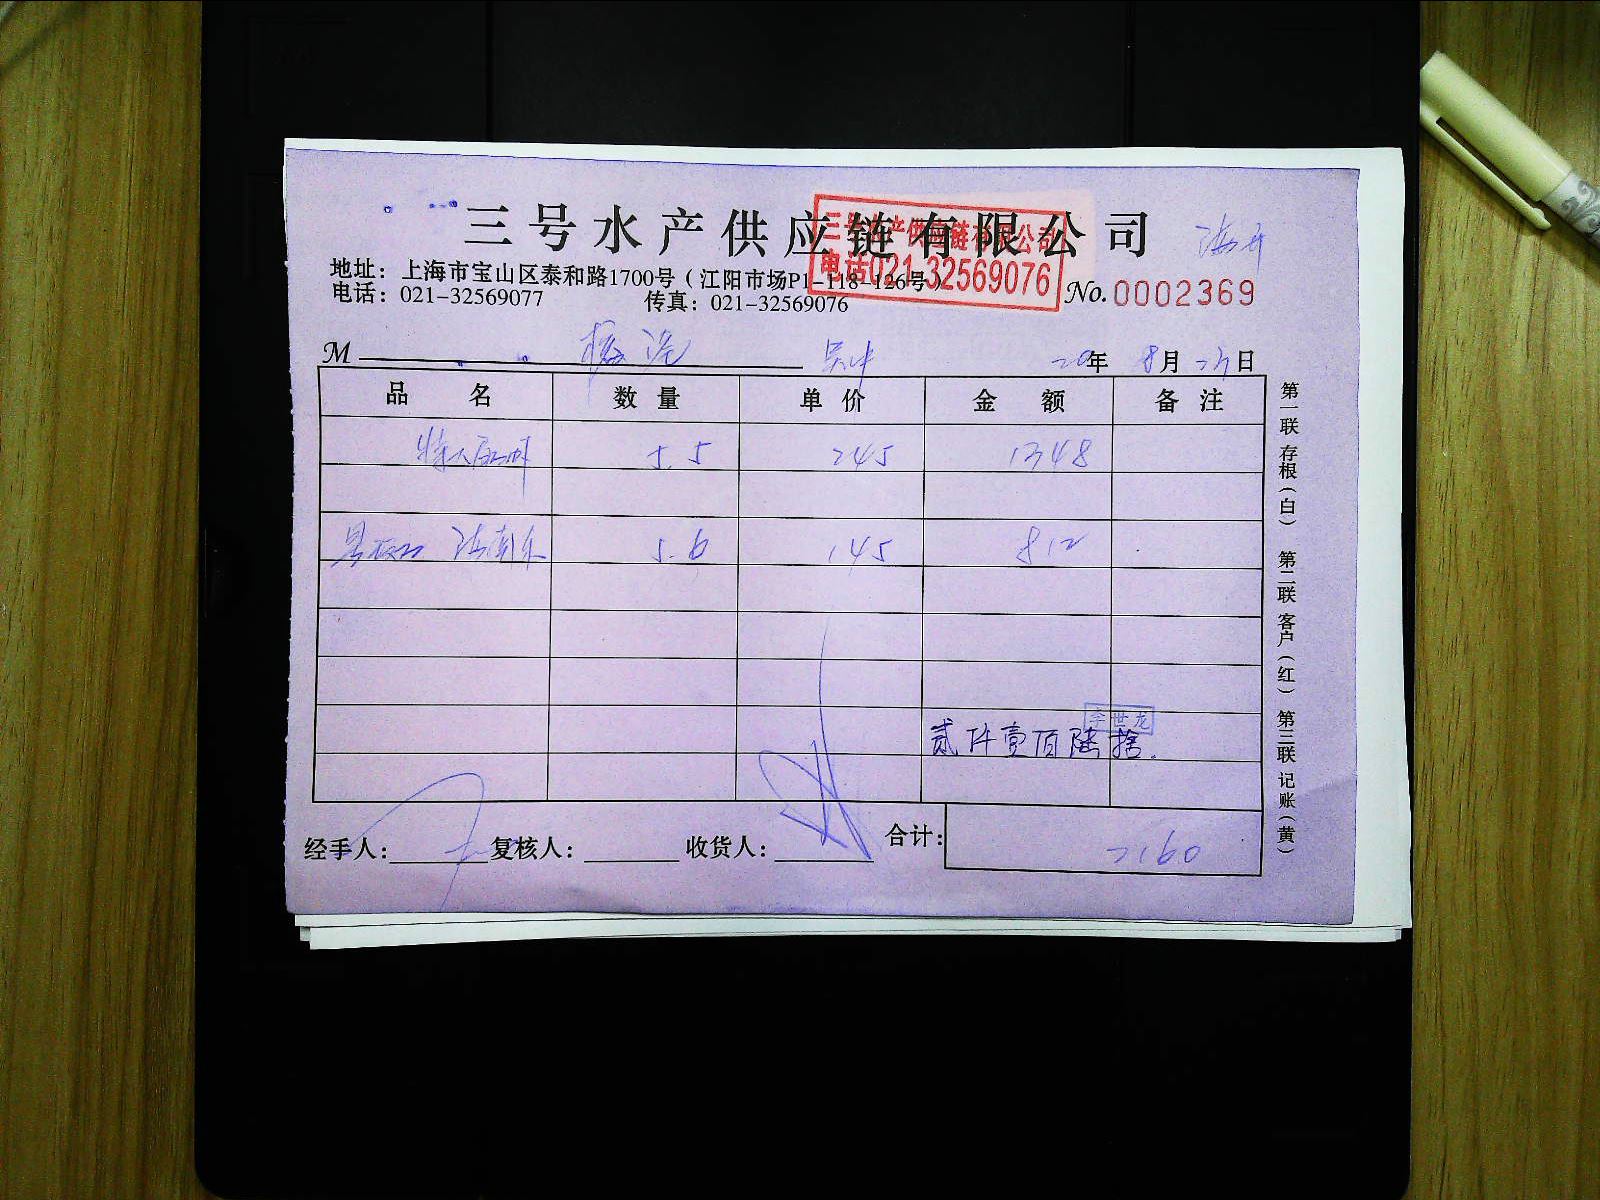 三号水产供应链有限公司
三号水产供应链有限公司
电话021-32569076
地址：上海市宝山区泰和路1700号（江阳市场P1-118-126号）
电话：021-32569077 传真：021-32569076
No.0002369
M
20年 8月 日
品名 数量 单价 金额 备注
5.5 245 1348
5.6 145 812
李世龙
贰仟壹佰陆捨.
经手人： 复核人： 收货人： 合计：2160
第一联 存根（白） 第二联 客户（红） 第三联 记账（黄）